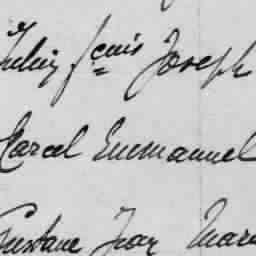 Julien fçois Joseph
Marcel Emmanuel
Gustave Jean Marie